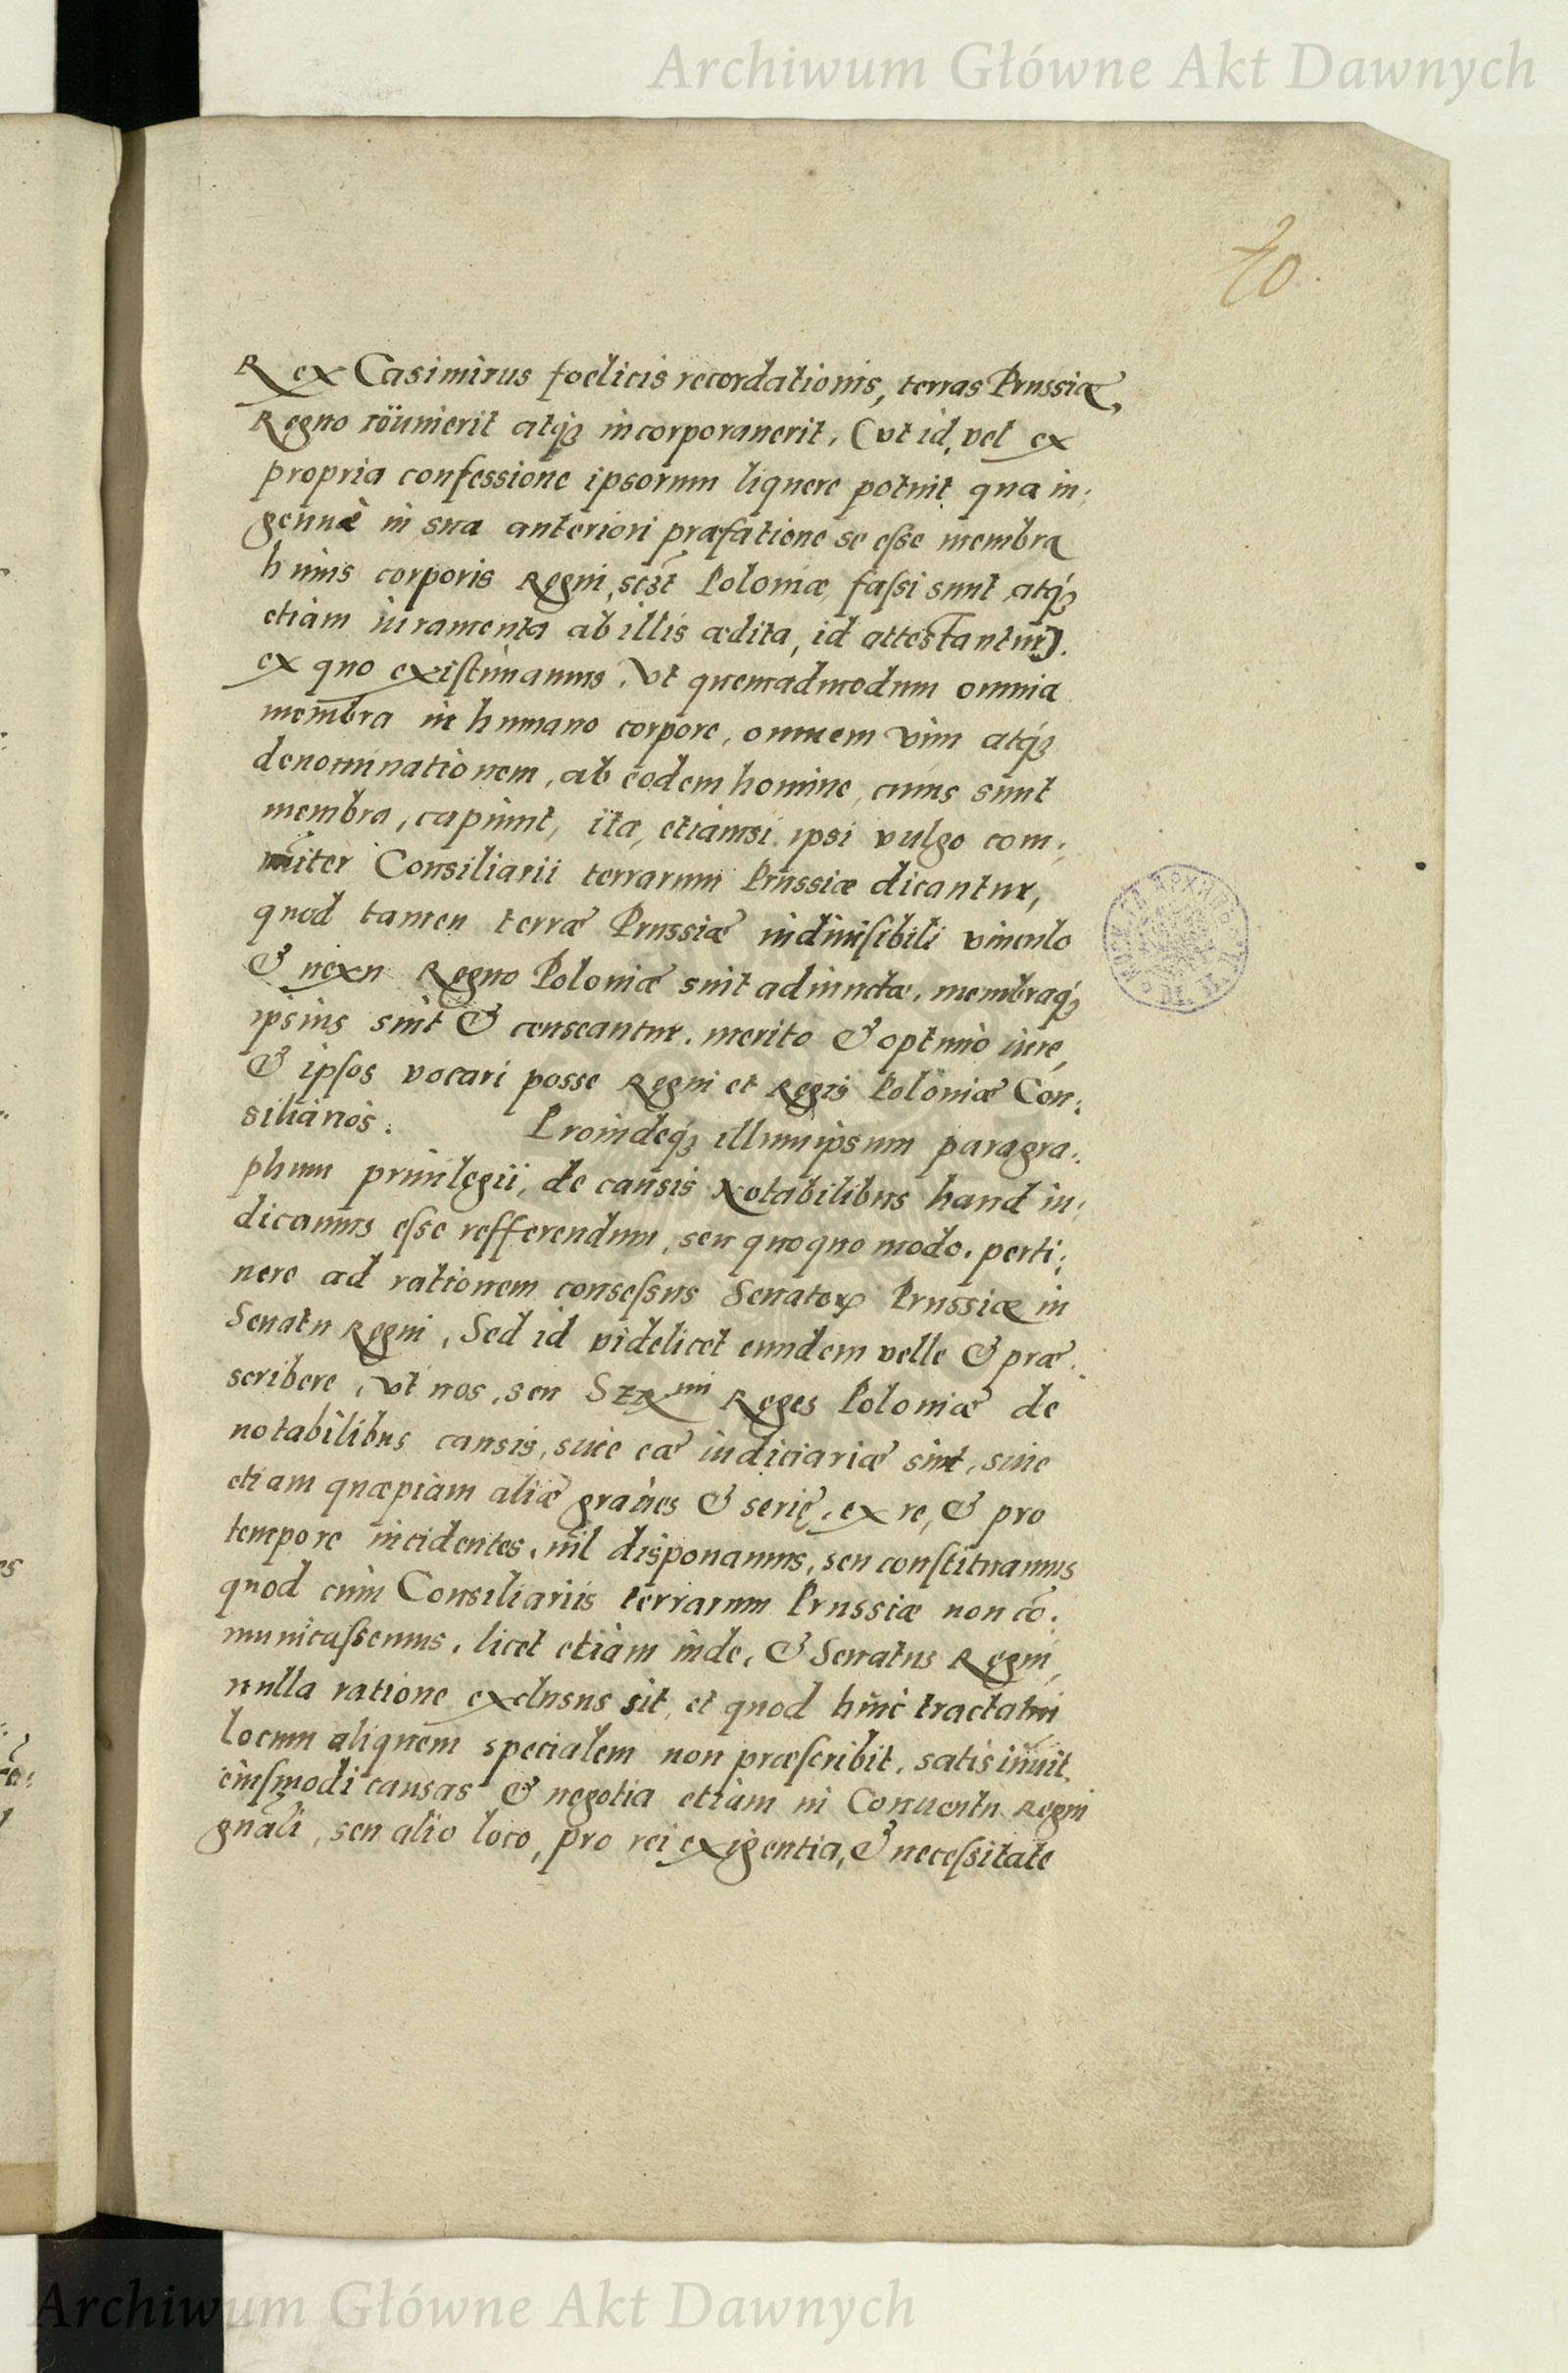 Archiwum Główne Akt Dawnych
20.
Rex Casimirus foelicis recordationis, terras Prussiæ,
Regno röunierit atq́ꝫ incorporauerit, (vt id vel ex
propria confessione ipsorum liquere potuit qua in:
genuè in sua anteriori præfatione se esse membra
huius corporis Regni, sczt Poloniæ fassi sunt atq́ꝫ
etiam iuramenta ab illis ædita, id attestantur).
ex quo existimamus, Vt quemadmodum omnia
membra in humano corpore, omnem vim atq́ꝫ
denominationem, ab eodem homine, cuius sunt
membra, capiunt, ita, etiamsi ipsi vulgo com:
muiter Consiliarii terrarum Prussiæ dicantur,
quod tamen terræ Prussiæ indiuisibili vinculo
& nexu Regno Poloniæ sint adiunctæ, membraq́ꝫ
ipsius sint & censeantur, merito & optimo iure,
& ipsos vocari posse Regni et Regis Poloniæ Con:
siliarios. Proindeq́ꝫ illum ipsum paragra:
phum priuilegii, de causis Notabilibus haud iu:
dicamus esse refferendum, seu quoquo modo, perti:
nere ad rationem consessus Senatoꝝ Prussiæ in
Senatu Regni, Sed id videlicet eundem velle & præ:
scribere, vt nos, seu Sermi Reges Poloniæ de
notabilibus causis, siue eæ iudiciariæ sint, siue
etiam quæpiam aliæ graues & serię, ex re, & pro
tempore incidentes, nil disponamus, seu constituamus
quod cum Consiliariis terrarum Prussiæ non cō:
municassemus, licet etiam inde, & Senatus Regni,
nulla ratione exclusus sit, et quod huic tractatui
locum aliquem specialem non præscribit, satis inuit,
eiusmodi causas & negotia etiam in Conuentu Regni
gnāli, seu alio loco, pro rei exigentia, & necessitate
Archiwum Główne Akt Dawnych